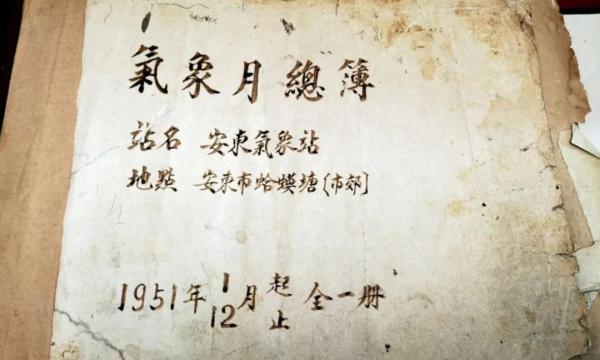 氣象月總簿
站名 安東氣象站
地點 安東市蛤蟆塘(市郊)
1951年1月起
12止 全一册